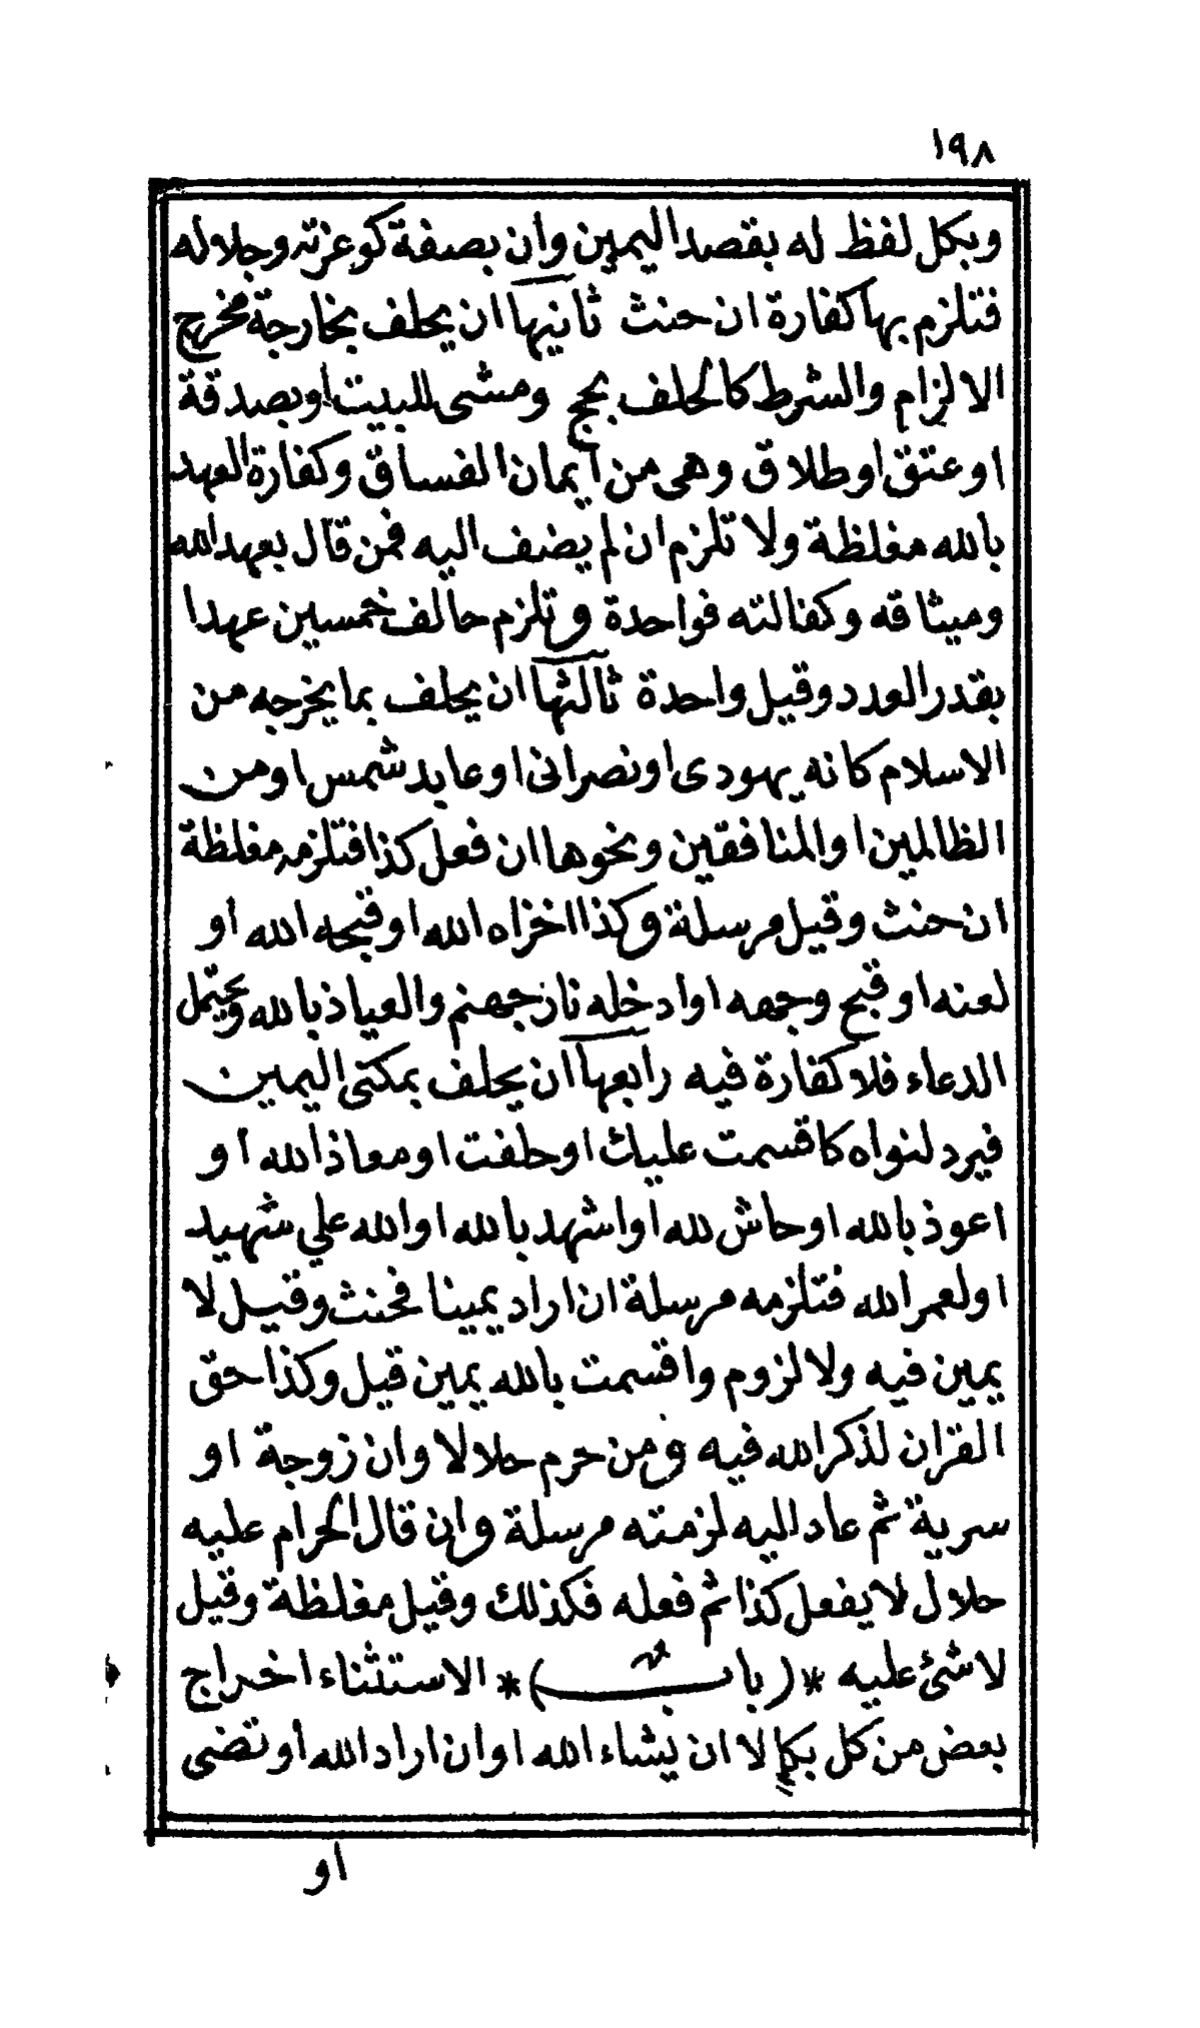 ١٩٨
وبكل لفظ له بقصد اليمين وان بصفة كوعزته وجلاله
فتلزم بها كفارة ان حنث ثانيها ان يحلف بخارجة مخرج
الالزام والشرط كالحلف بحج ومشى للبيت او بصدقة
او عتق او طلاق وهى من أيمان الفساق وكفارة العهد
بالله مغلظة ولا تلزم ان لم يضف اليه فمن قال بعهد الله
وميثاقه وكفالته فواحدة وتلزم حالف خمسين عهدا
بقدر العدد وقيل واحدة ثالثها ان يحلف بما يخرجه من
الاسلام كانه يهودى او نصرانى او عابد شمس او من
الظالمين او المنافقين ونحوها ان فعل كذا فتلزمه مغلظة
ان حنث وقيل مرسلة وكذا اخزاه الله او قبحه الله او
لعنه او قبح وجهه او ادخله نار جهنم والعياذ بالله ويحتمل
الدعاء فلا كفارة فيه رابعها ان يحلف بمكنى اليمين
فيرد لنواه كاقسمت عليك او حلفت او معاذ الله او
اعوذ بالله او حاش لله او اشهد بالله او الله علي شهيد
او لعمر الله فتلزمه مرسلة ان اراد يمينا فحنث وقيل لا
يمين فيه ولا لزوم واقسمت بالله يمين قيل وكذا حق
القران لذكر الله فيه ومن حرم حلالا وان زوجة او
سرية ثم عاد اليه لزمته مرسلة وان قال الحرام عليه
حلال لا يفعل كذا ثم فعله فكذلك وقيل مغلظة وقيل
لا شئ عليه * (باب) * الاستثناء اخراج
بعض من كل بكإلا ان يشاء الله او ان اراد الله أو قضى
او